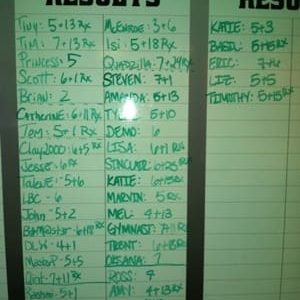 RESULTS
Tivy: 5+13 Rx
Tim: 7+13 Rx
Princess: 5
Scott: 6+1 Rx
Brian: 2
Catherine: 6+11 Rx
Tom: 5+1 Rx
Clay2000: 6+5 Rx
Jesse: 6 Rx
5+6
LBC - 6
John - 5+2
DLW - 4+1
MasterP - 5+5
7+11 Rx
5+1
McEnroe: 3+6
Isi: 5+18 Rx
Quadzilla: 7+24 Rx
STEVEN: 7+1
AMANDA: 5+13
5+10
DEMO: 6
LISA: 6+1 Rx
SINCLAIR:
KATIE:
MARVIN: 5 Rx
MEL: 4+13
GYMNAST:
TRENT: 6+13 Rx
OKSANA: 7
ROSS: 9
AMY: 4+13 Rx
KATIE: 5+3
BASIL: 5+5 Rx
ERIC: 7+4
LIZ: 5+5
TIMOTHY: 5+15 Rx